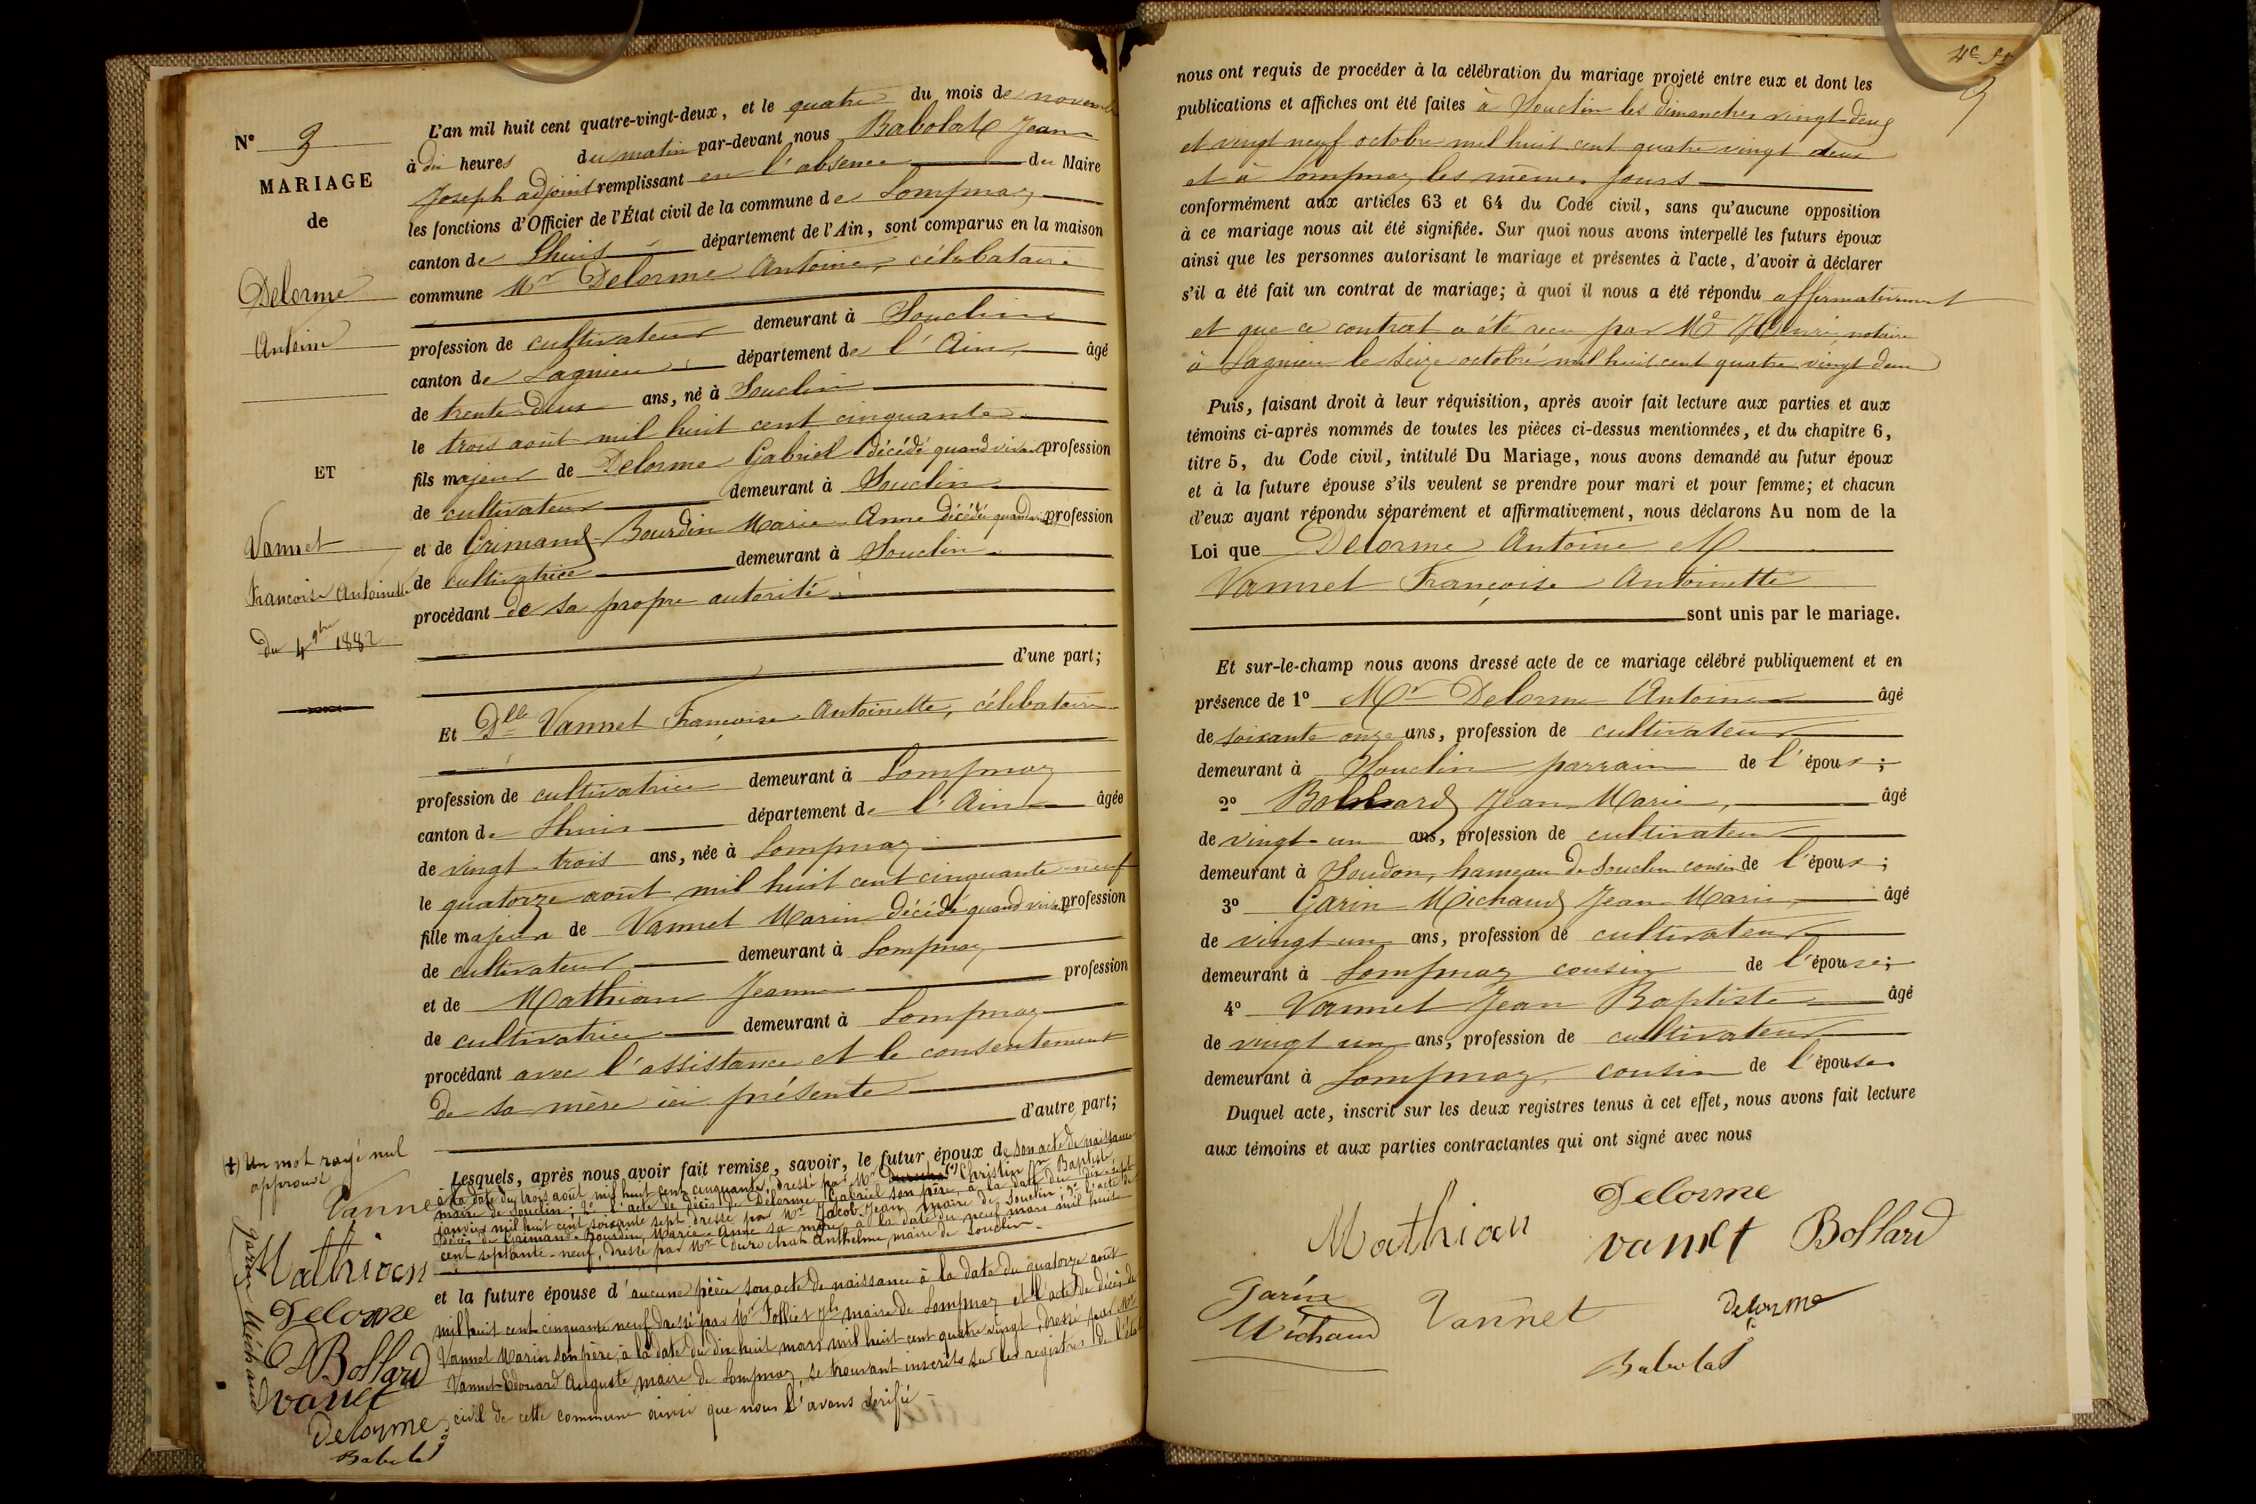 N° 3
MARIAGE
de
Delorme
Antoine
ET
Vannet
Françoise Antoinette
Du 4 9bre 1882
L'an mil huit cent quatre-vingt-deux, et le quatre du mois de novembre
à dix heures du matin par-devant nous Babolat Jean
Joseph adjoint remplissant en l'absence du Maire
les fonctions d'Officier de l'État civil de la commune de Lompnaz
canton de Lhuis département de l'Ain, sont comparus en la maison
commune Mr Delorme Antoine, célibataire
profession de cultivateur demeurant à Souclin
canton de Lagnieu département de l'Ain âgé
de trente-deux ans, né à Souclin
le trois août mil huit cent cinquante
fils majeur de Delorme Gabriel décédé quand vivait profession
de cultivateur demeurant à Souclin
et de Grimand-Bourdin Marie-Anne décédée quand vivait profession
de cultivatrice demeurant à Souclin
procédant de sa propre autorité
d'une part;
Et Dlle Vannet Françoise Antoinette, célibataire
profession de cultivatrice demeurant à Lompnaz
canton de Lhuis département de l'Ain âgée
de vingt-trois ans, née à Lompnaz
le quatorze août mil huit cent cinquante-neuf
fille majeure de Vannet Marin décédé quand vivait profession
de cultivateur demeurant à Lompnaz
et de Mathian Jeanne profession
de cultivatrice demeurant à Lompnaz
procédant avec l'assistance et le consentement
de sa mère ici présente
d'autre part;
Lesquels, après nous avoir fait remise, savoir, le futur époux de son acte de naissance
à la date du trois août mil huit cent cinquante, dressé par Mr (+) Christin Jn Baptiste
maire de Souclin; 2° l'acte de décès de Delorme Gabriel son père, à la date du dix-sept
janvier mil huit cent soixante sept dressé par Mr Jacob Jean maire de Souclin; 3° l'acte de
décès de Grimand-Bourdin Marie-Anne sa mère à la date du neuf mars mil huit
cent septante-neuf, dressé par Mr Durochat Anthelme, maire de Souclin.
et la future épouse d'aucune pièce son acte de naissance à la date du quatorze août
mil huit cent cinquante neuf dressé par Mr Folliet Jh maire de Lompnaz et l'acte de décès de
Vannet Marin son père, à la date du dix huit mars mil huit cent quatre vingt, dressé par Mr
Vannet-Edouard Auguste maire de Lompnaz, se trouvant inscrits sur les registres de l'état
civil de cette commune ainsi que nous l'avons vérifié
(+) Un mot rayé nul
approuvé
Vannet
Mathian
Garin Michaud
Delorme
Bollard
vanet
Delorme
Babolat
3
nous ont requis de procéder à la célébration du mariage projeté entre eux et dont les
publications et affiches ont été faites à Souclin les dimanches vingt-deux
et vingt neuf octobre mil huit cent quatre vingt deux
et à Lompnaz les mêmes jours
conformément aux articles 63 et 64 du Code civil, sans qu'aucune opposition
à ce mariage nous ait été signifiée. Sur quoi nous avons interpellé les futurs époux
ainsi que les personnes autorisant le mariage et présentes à l'acte, d'avoir à déclarer
s'il a été fait un contrat de mariage; à quoi il nous a été répondu affirmativement
et que ce contrat a été reçu par Me Henri, notaire
à Lagnieu le seize octobre mil huit cent quatre vingt deux
Puis, faisant droit à leur réquisition, après avoir fait lecture aux parties et aux
témoins ci-après nommés de toutes les pièces ci-dessus mentionnées, et du chapitre 6,
titre 5, du Code civil, intitulé Du Mariage, nous avons demandé au futur époux
et à la future épouse s'ils veulent se prendre pour mari et pour femme; et chacun
d'eux ayant répondu séparément et affirmativement, nous déclarons Au nom de la
Loi que Delorme Antoine et
Vannet Françoise Antoinette
sont unis par le mariage.
Et sur-le-champ nous avons dressé acte de ce mariage célébré publiquement et en
présence de 1° Mr Delorme Antoine âgé
de soixante onze ans, profession de cultivateur
demeurant à Souclin parrain de l'époux;
2° Bollard Jean Marie, âgé
de vingt-un ans, profession de cultivateur
demeurant à Soudon, hameau de Souclin cousin de l'époux;
3° Garin Michaud Jean Marie âgé
de vingt-un ans, profession de cultivateur
demeurant à Lompnaz cousin de l'épouse;
4° Vannet Jean Baptiste âgé
de vingt un ans, profession de cultivateur
demeurant à Lompnaz cousin de l'épouse
Duquel acte, inscrit sur les deux registres tenus à cet effet, nous avons fait lecture
aux témoins et aux parties contractantes qui ont signé avec nous
Delorme
Mathian vanet Bollard
Garin
Michaud Vannet Delorme
Babolat